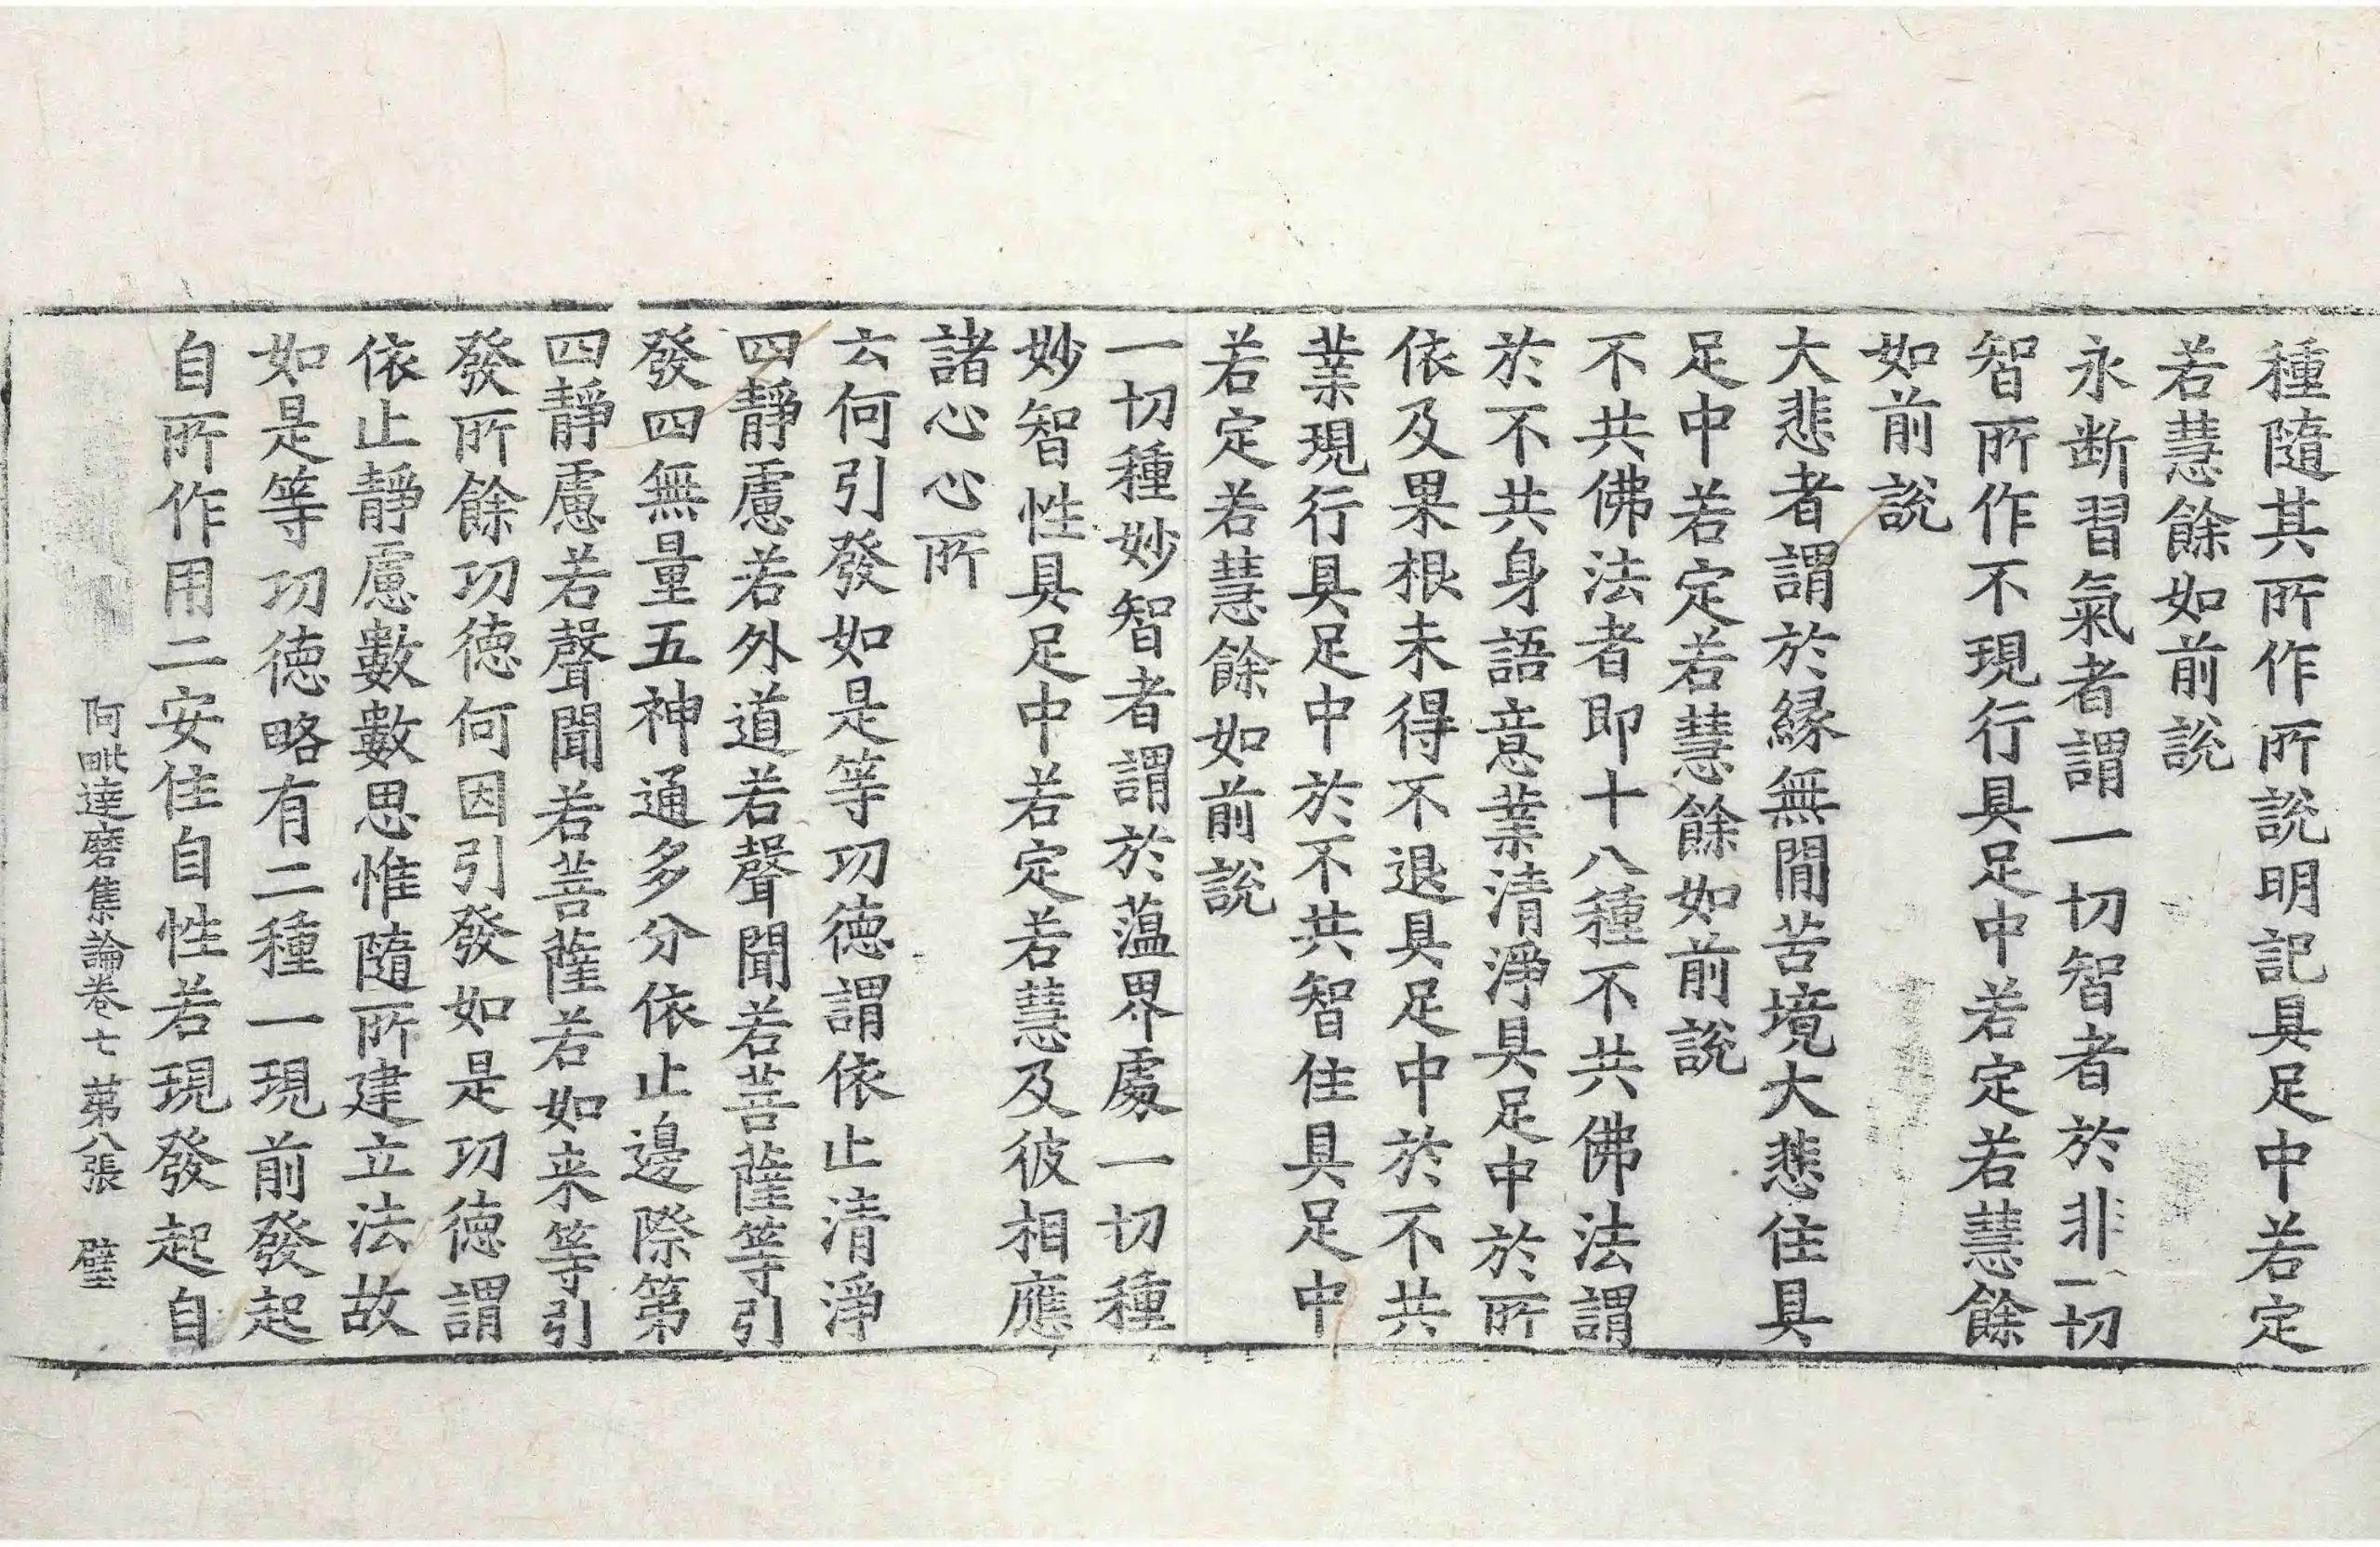 種隨其所作所說明記具足中若定
若慧餘如前說
永斷習氣者謂一切智者於非一切
智所作不現行具足中若定若慧餘
如前說
大悲者謂於縁無閒苦境大悲住具
足中若定若慧餘如前說
不共佛法者即十八種不共佛法謂
於不共身語意業清淨具足中於所
依及果根未得不退具足中於不共
業現行具足中於不共智住具足中
若定若慧餘如前說
一切種妙智者謂於蘊界處一切種
妙智性具足中若定若慧及彼相應
諸心心所
云何引發如是等功德謂依止清淨
四靜慮若外道若聲聞若菩薩等引
發四無量五神通多分依止邊際第
四靜慮若聲聞若菩薩若如来等引
發所餘功德何因引發如是功德謂
依止靜慮數數思惟隨所建立法故
如是等功德略有二種一現前發起
自所作用二安住自性若現發起自
阿毗達磨集論卷七 苐八張 璧